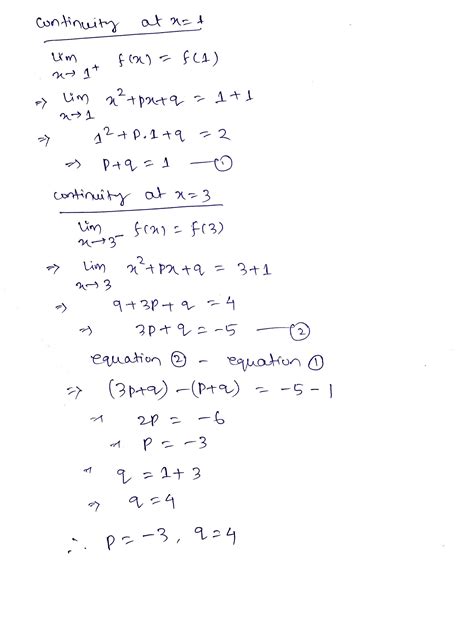 continuity at x=1
lim x→1⁺ f(x) = f(1)
⇒ lim x→1 x²+px+q = 1+1
⇒ 1²+p.1+q = 2
⇒ p+q = 1 —①
continuity at x=3
lim x→3⁻ f(x) = f(3)
⇒ lim x→3 x²+px+q = 3+1
⇒ 9+3p+q = 4
⇒ 3p+q = -5 —②
equation ② - equation ①
⇒ (3p+q)-(p+q) = -5-1
⇒ 2p = -6
⇒ p = -3
⇒ q = 1+3
⇒ q=4
∴ p=-3, q=4